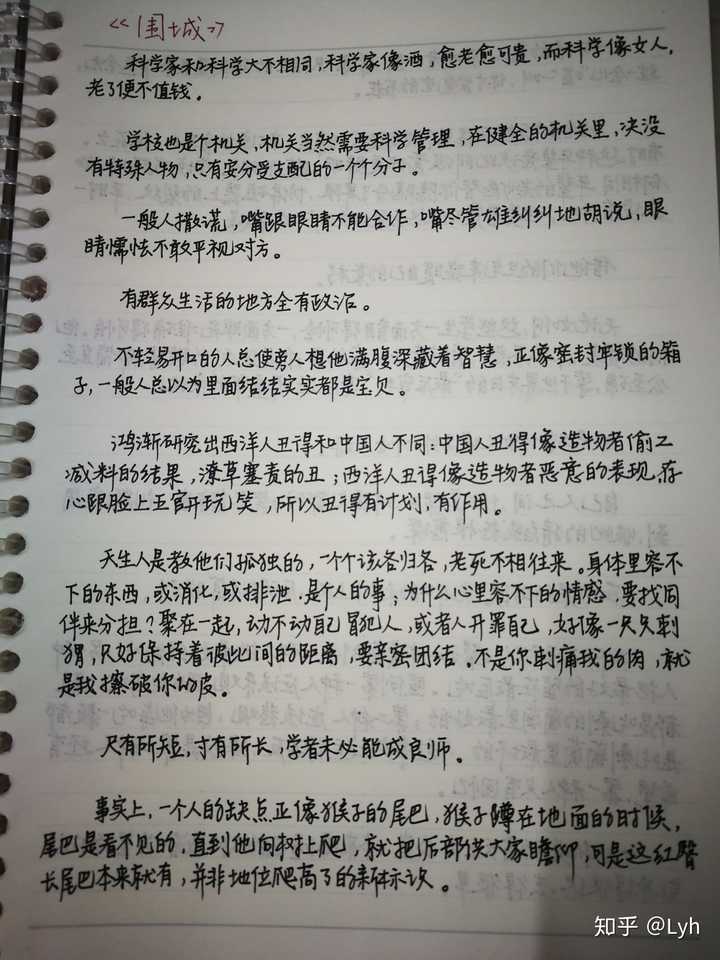 <<围城>>
科学家和科学大不相同,科学家像酒,愈老愈可贵,而科学像女人,
老了便不值钱。
学校也是个机关,机关当然需要科学管理,在健全的机关里,决没
有特殊人物,只有安分受支配的一个个分子。
一般人撒谎,嘴跟眼睛不能合作,嘴尽管雄纠纠地胡说,眼
睛懦怯不敢平视对方。
有群众生活的地方全有政治。
不轻易开口的人总使旁人想他满腹深藏着智慧,正像密封牢锁的箱
子,一般人总以为里面结结实实都是宝贝。
鸿渐研究出西洋人丑得和中国人不同:中国人丑得像造物者偷工
减料的结果,潦草塞责的丑;西洋人丑得像造物者恶意的表现,存
心跟脸上五官开玩笑,所以丑得有计划,有作用。
天生人是教他们孤独的,一个个该各归各,老死不相往来。身体里容不
下的东西,或消化,或排泄,是个人的事;为什么心里容不下的情感,要找同
伴来分担?聚在一起,动不动自己冒犯人,或者人开罪自己,好像一只只刺
猬,只好保持着彼此间的距离,要亲密团结。不是你刺痛我的肉,就
是我擦破你的皮。
尺有所短,寸有所长,学者未必能成良师。
事实上,一个人的缺点正像猴子的尾巴,猴子蹲在地面的时候,
尾巴是看不见的,直到他向树上爬,就把后部供大家瞻仰,可是这红臀
长尾巴本来就有,并非地位爬高了的新标识。
知乎 @Lyh